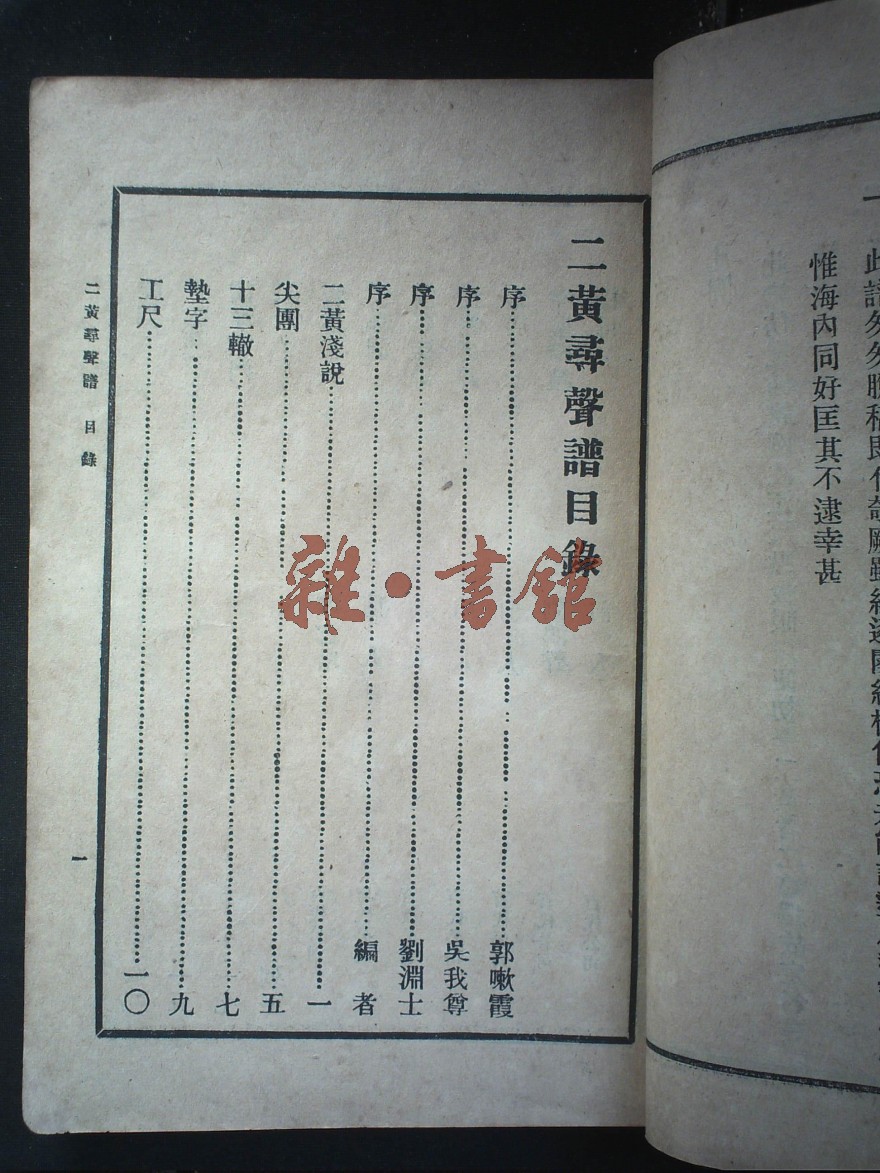 惟海內同好匡其不逮幸甚
二黃尋聲譜目錄
序……郭嗽霞
序……吳我尊
序……劉淵士
序……編者
二黃淺說……一
尖團……五
十三轍……七
墊字……九
工尺……一〇
二黃尋聲譜 目錄
一
雜·書館